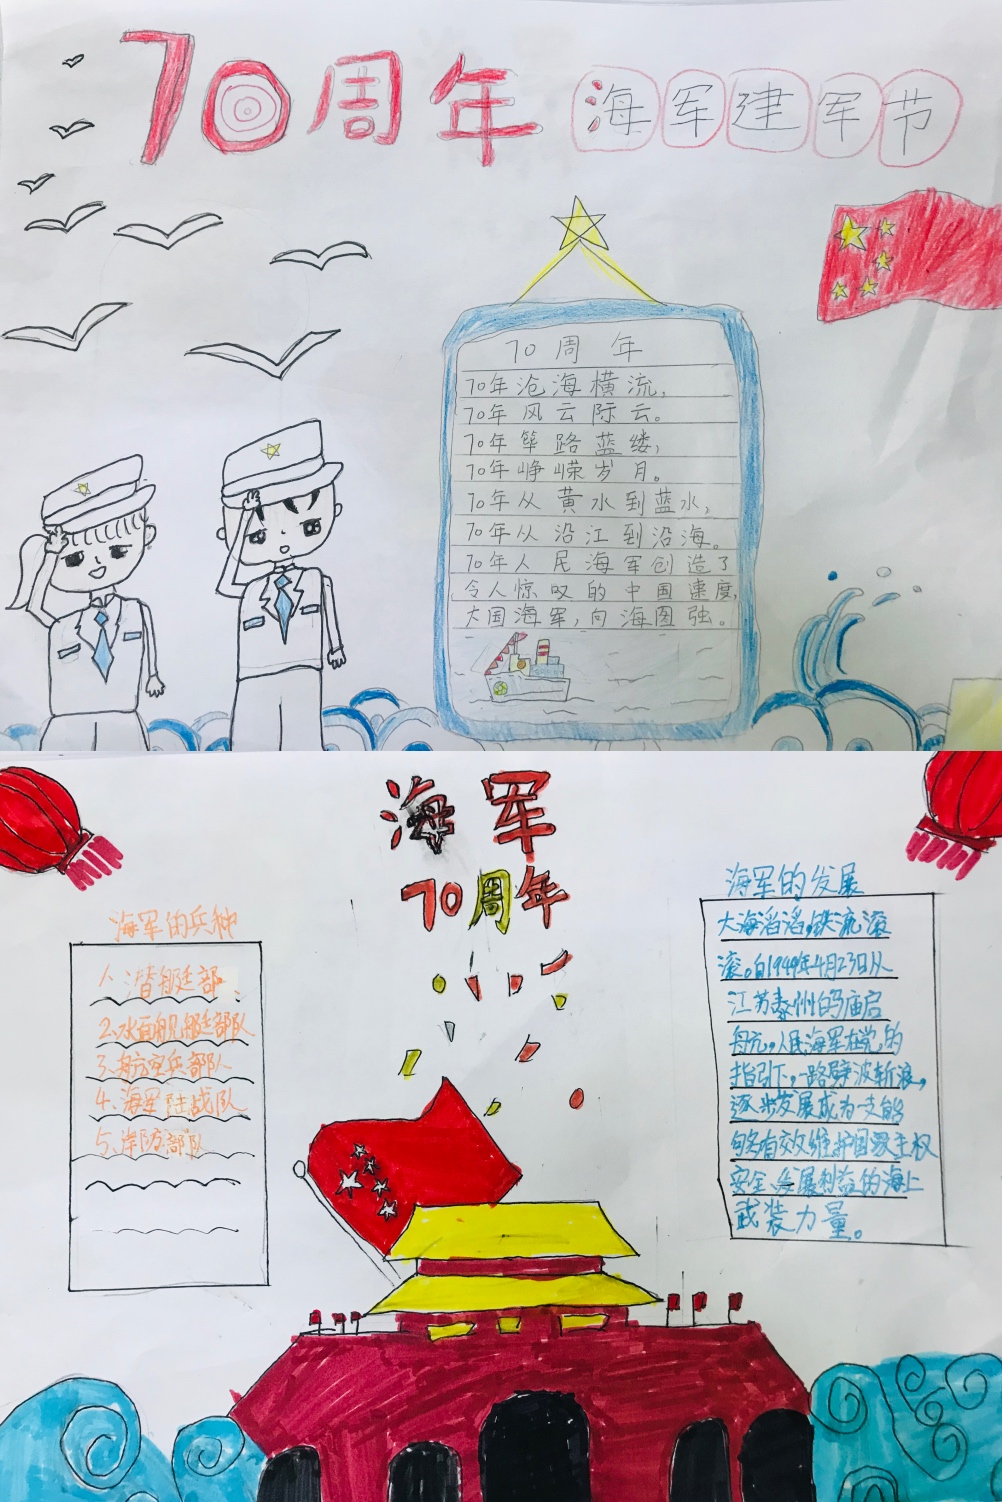 70周年 海军建军节
70周年
70年沧海横流,
70年风云际云。
70年筚路蓝缕,
70年峥嵘岁月。
70年从黄水到蓝水,
70年从沿江到沿海。
70年人民海军创造了
令人惊叹的中国速度,
大国海军,向海图强。
海军
70周年
海军的兵种
1、潜艇部
2、水面舰艇部队
3、航空兵部队
4、海军陆战队
5、岸防部队
海军的发展
大海滔滔,铁流滚
滚。自1949年4月23日从
江苏泰州的庙启
航,人民海军在党的
指引下,一路劈波斩浪,
逐步发展成为一支能
够有效维护国家主权
安全、发展利益的海上
武装力量。